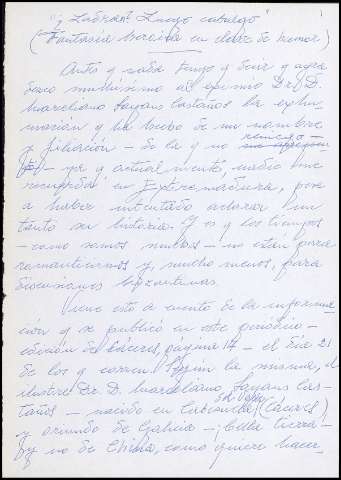 "¡ Ladran? Luego cabalgo"
(Fantasía heroica en clave de humor)
Antes q nada tengo q decir y agra
dezco muchísimo al eximio Dr. D.
Marceliano Sayans Castaños la exhu-
mación q ha hecho de mi nombre
y filiación - de la q no reniego -
- ya q actualmente, nadie me
recuerda en Extremadura, pese
a haber intentado aclarar un
tanto su historia. Y es q los tiempos
- como somos muchos - no están para
romanticismos y, mucho menos, para
discusiones bizantinas.
Viene esto a cuento de la informa-
ción q se publicó en este periódico -
edición de Cáceres, página 14 - el día 21
de los q corren. Según la misma, el
ilustre Dr. D. Marceliano Sayans Cas-
taños - nacido en Cabezuela del Valle (Cáceres)
y oriundo de Galicia - ¡bella tierra -
y no de China, como quiere hacer